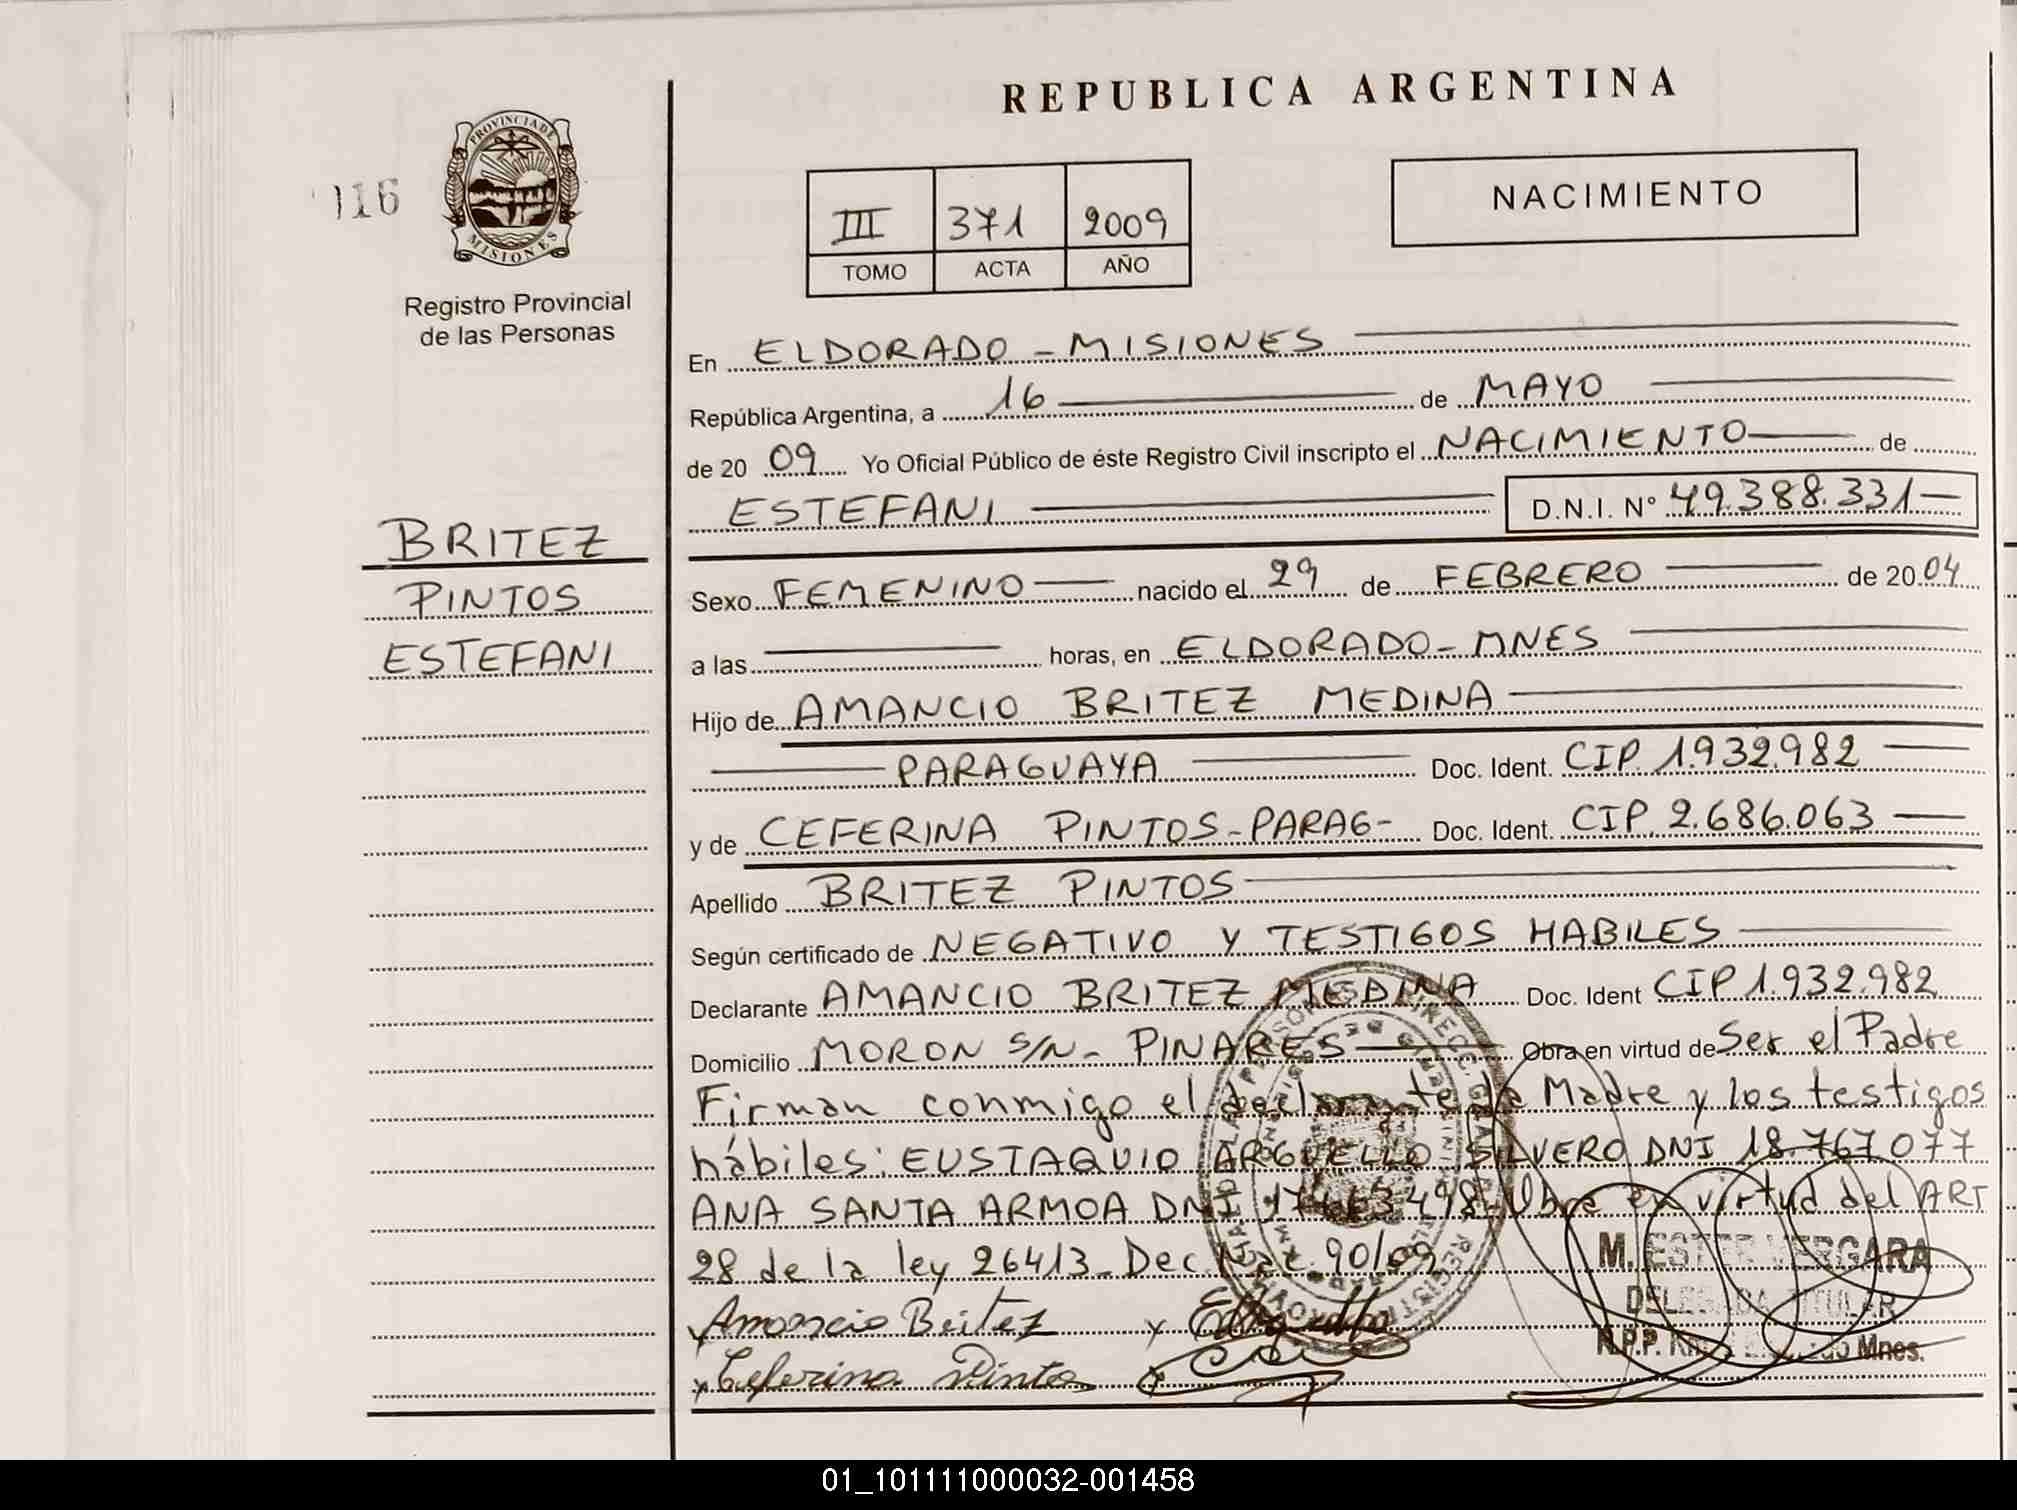 REPUBLICA ARGENTINA
116
PROVINCIA DE
MISIONES
Registro Provincial
de las Personas
III 371 2009
TOMO ACTA AÑO
NACIMIENTO
En ELDORADO - MISIONES
República Argentina, a 16 de MAYO
de 20 09 Yo Oficial Público de éste Registro Civil inscripto el NACIMIENTO de
ESTEFANI D.N.I. N° 49.388.331
BRITEZ
PINTOS
ESTEFANI
Sexo FEMENINO nacido el 29 de FEBRERO de 20 04
a las horas, en ELDORADO - MNES
Hijo de AMANCIO BRITEZ MEDINA
PARAGUAYA Doc. Ident. CIP. 1.932.982
y de CEFERINA PINTOS - PARAG - Doc. Ident. CIP. 2.686.063
Apellido BRITEZ PINTOS
Según certificado de NEGATIVO Y TESTIGOS HABILES
Declarante AMANCIO BRITEZ MEDINA Doc. Ident CIP 1.932.982
Domicilio MORON S/N - PINARES Obra en virtud de Ser el Padre
Firman conmigo el declarante la Madre y los testigos
hábiles: EUSTAQUIO ARGUELLO SILVERO DNI 18.767.077
ANA SANTA ARMOA DNI Obra en virtud del ART
28 de la ley 26413 - Dec. 90/09
Amancio Britez y
y Ceferina Pinto
M. ESTER VERGARA
DELEGADA TITULAR
R.P.P. Mnes.
01_101111000032-001458